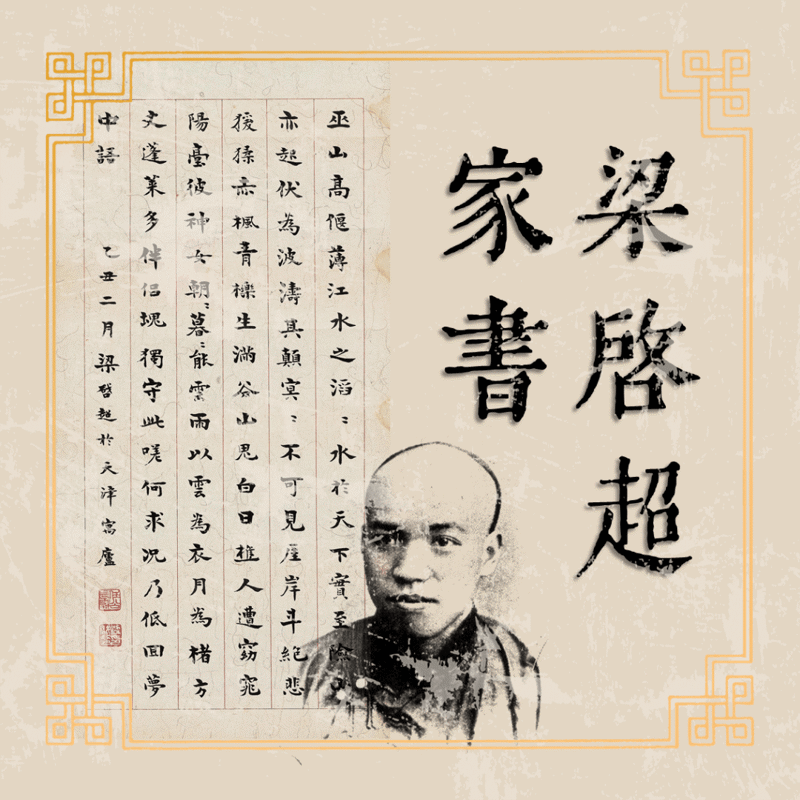 梁啓超
家書
巫山高偃薄江水之滔〻水於天下實至險
亦起伏為波濤其顛冥〻不可見崖岸斗絕悲
猨猱赤楓青櫟生滿谷山鬼白日樵人遭窈窕
陽臺彼神女朝〻暮〻能雲雨以雲為衣月為楮方
丈蓬萊多伴侣塊獨守此嗟何求况乃低回夢
中語
乙丑二月梁啓超於天津寓廬